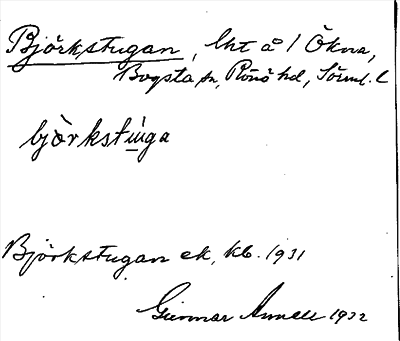 Björkstugan, lht å 1 Ökna,
Bogsta sn, Rönö hd, Sörml. l
bjö̀rkstúga
Björkstugan ek. kb. 1931
Gunnar 1932